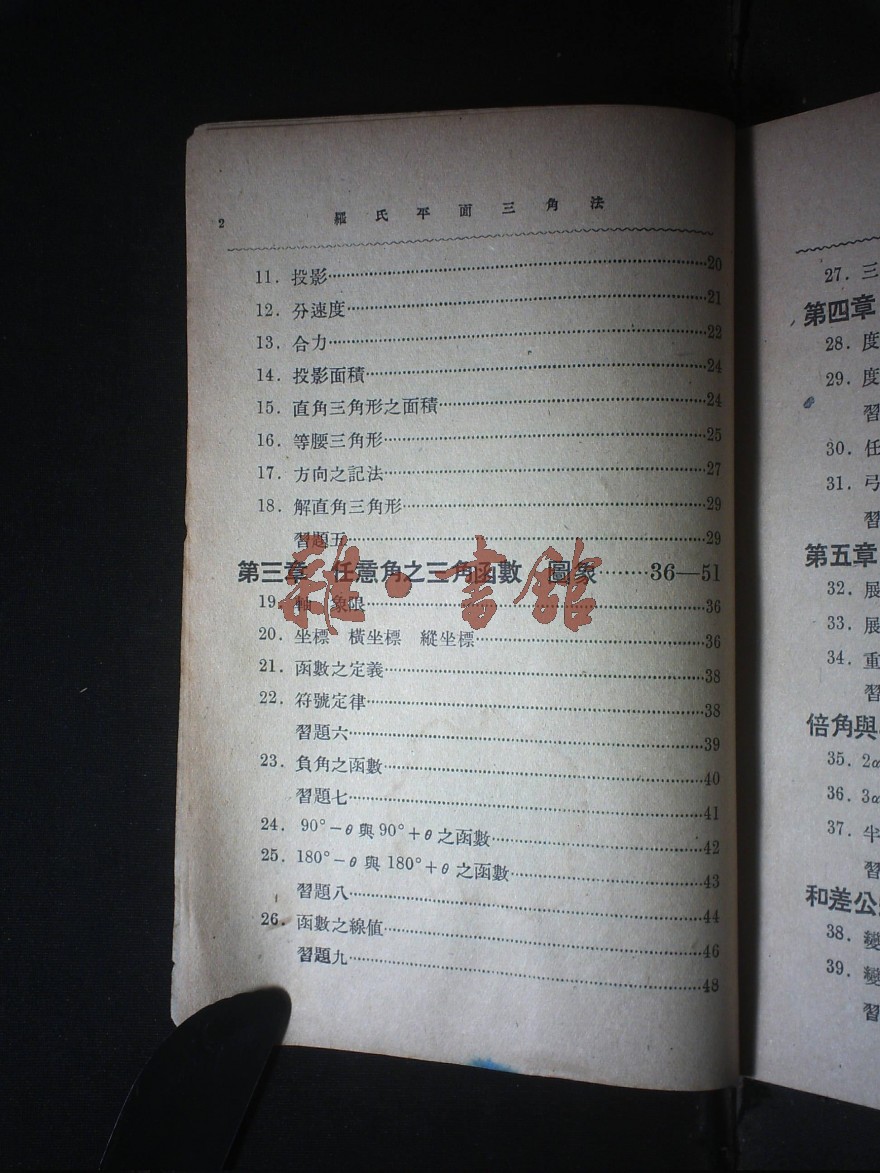 2 羅氏平面三角法
11. 投影……20
12. 分速度……21
13. 合力……22
14. 投影面積……24
15. 直角三角形之面積……24
16. 等腰三角形……25
17. 方向之記法……27
18. 解直角三角形……29
習題五……29
第三章 任意角之三角函數 圖象……36—51
19. 軸 象限……36
20. 坐標 橫坐標 縱坐標……36
21. 函數之定義……38
22. 符號定律……38
習題六……39
23. 負角之函數……40
習題七……41
24. 90°−θ與90°+θ之函數……42
25. 180°−θ與180°+θ之函數……43
習題八……44
26. 函數之線值……46
習題九……48
雜·書館
27. 三
第四章
28. 度
29. 度
習
30. 任
31. 弓
習
第五章
32. 展
33. 展
34. 重
習
倍角與
35. 2α
36. 3α
37. 半
習
和差公
38. 變
39. 變
習